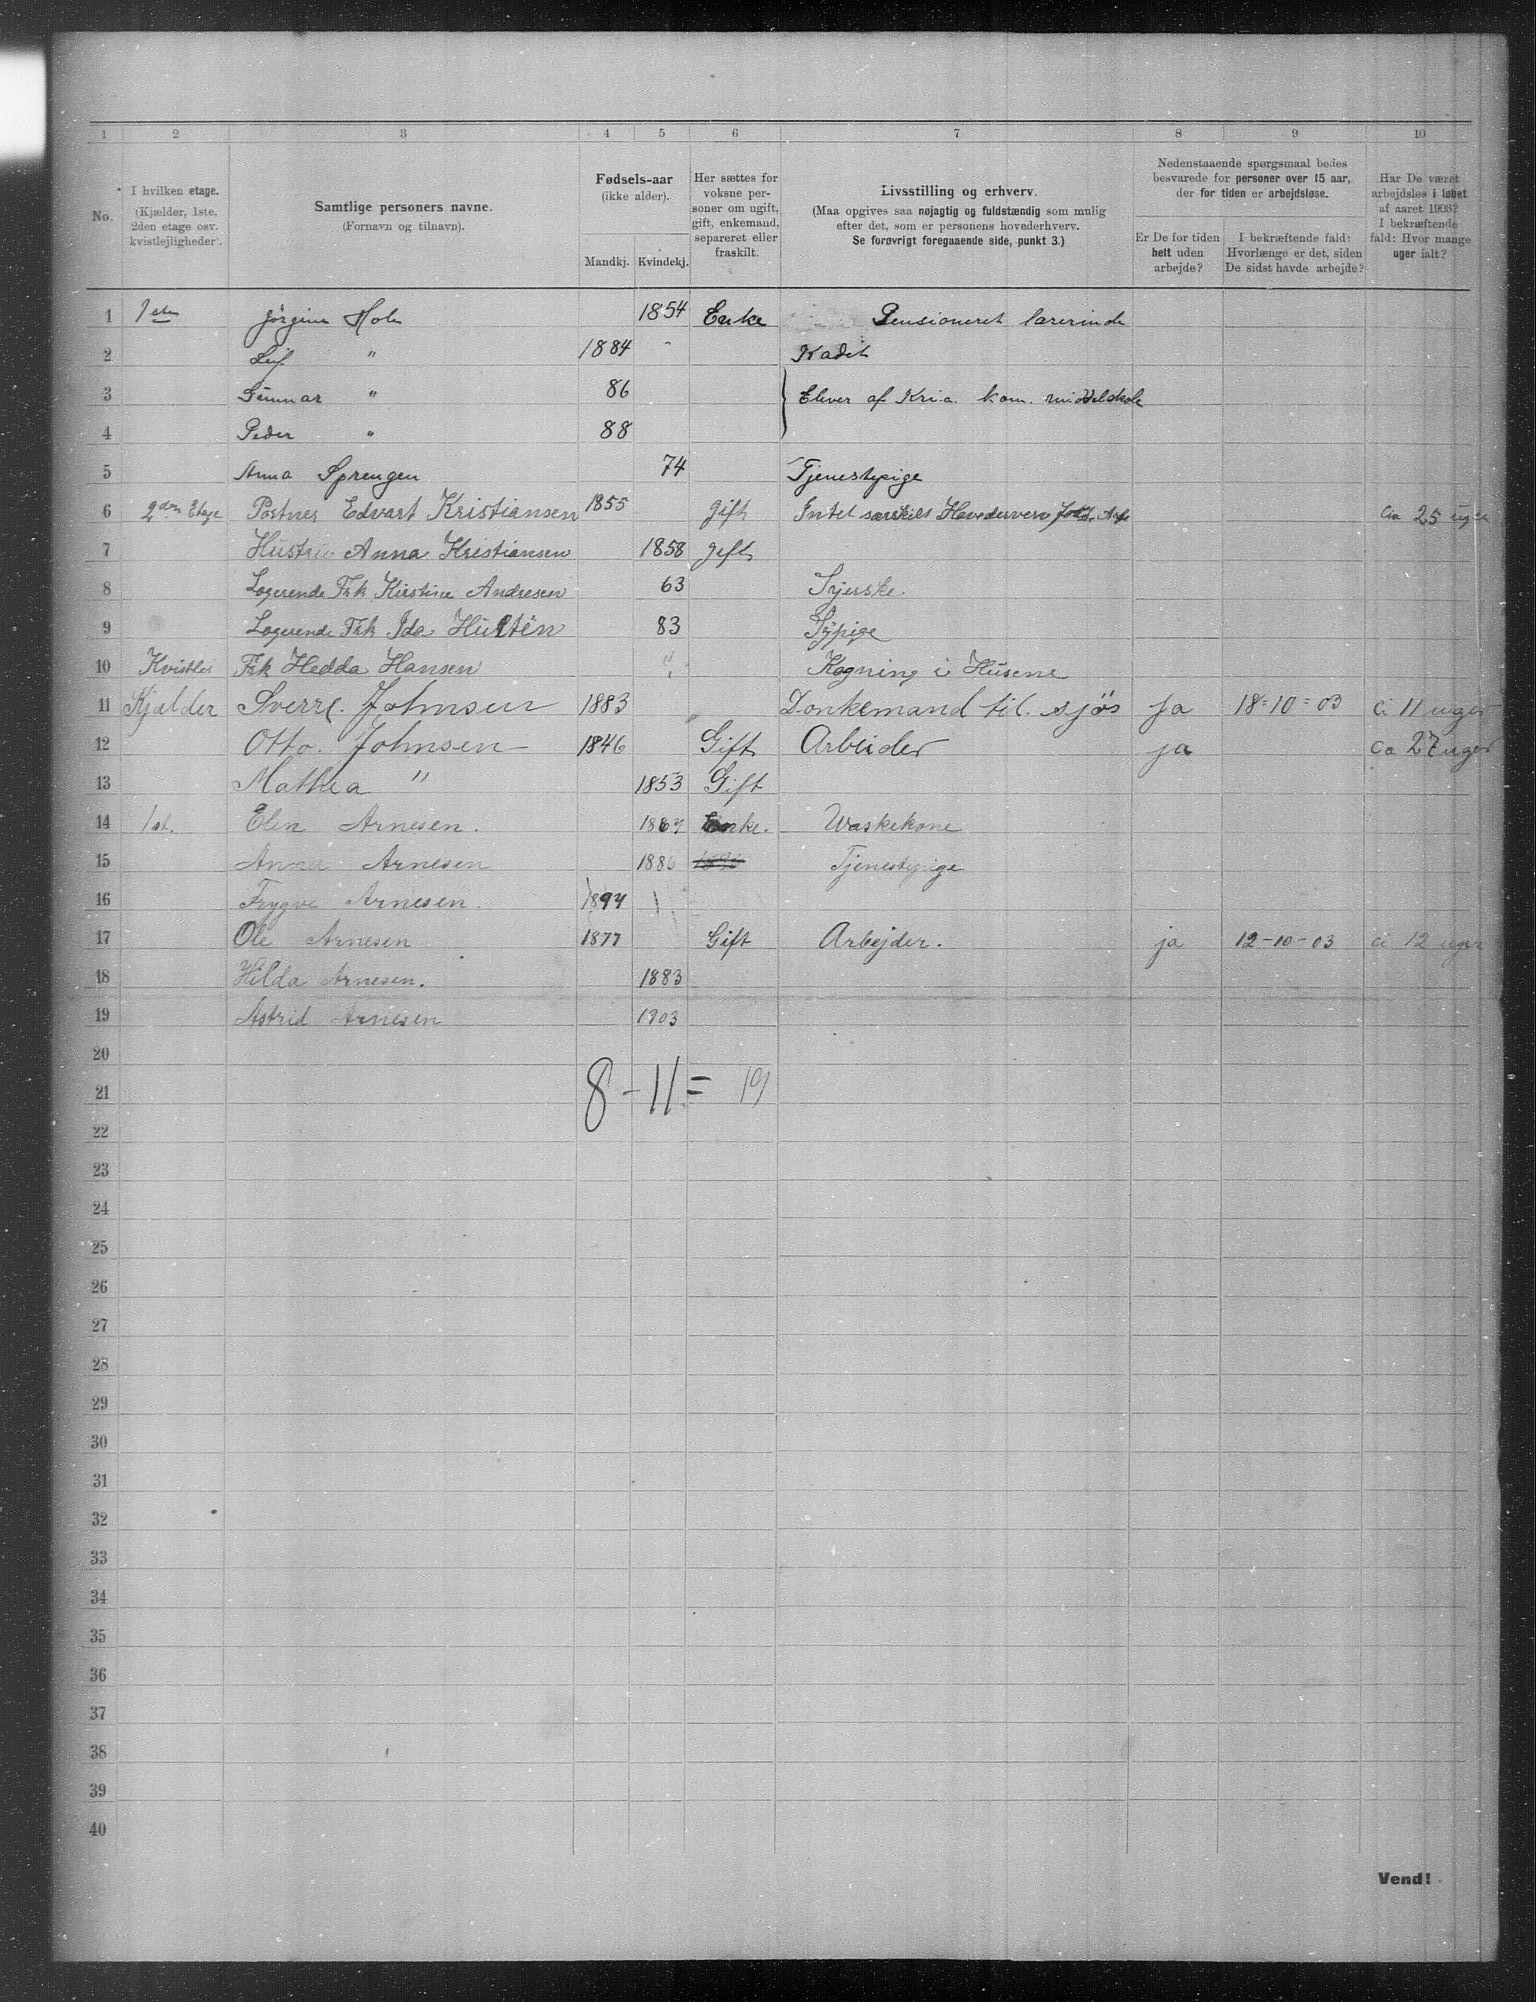 1 2 3 4 5 6 7 8 9 10
No.
I hvilken etage.
(Kjælder, 1ste,
2den etage osv.
kvistlejligheder).
Samtlige personers navne.
(Fornavn og tilnavn).
Fødsels-aar
(ikke alder).
Mandkj. Kvindekj.
Her sættes for
voksne per-
soner om ugift,
gift, enkemand,
separeret eller
fraskilt.
Livsstilling og erhverv.
(Maa opgives saa nøjagtig og fuldstændig som mulig
efter det, som er personens hovederhverv.
Se forøvrigt foregaaende side, punkt 3.)
Nedenstaaende spørgsmaal bedes
besvarede for personer over 15 aar,
der for tiden er arbejdsløse.
Er De for tiden
helt uden
arbejde?
I bekræftende fald:
Hvorlænge er det, siden
De sidst havde arbejde?
Har De været
arbejdsløs i løbet
af aaret 1903?
I bekræftende
fald: Hvor mange
uger ialt?
1 1ste Jörgine Hole 1854 Enke Pensioneret lærerinde
2 Leif " 1884 Kadet
3 Gunnar " 86 Elever af Kr.a. kom. middelskole
4 Peder " 88
5 Anna Sprengen 74 Tjenestepige
6 2den Etage Portner Edvart Kristiansen 1855 gift Intet særskilt Hovederverv Ca 25 uger
7 Hustru Anna Kristiansen 1858 gift
8 Logerende Frk Kirstine Andresen 63 Syerske
9 Logerende Frk Ida Hultén 83 Sypige
10 Frk Hedda Hansen Kogning i Husene
11 Kjælder Sverre. Johnsen 1883 Donkemand til. sjös Ja 18-10-03 Ci 11 uger
12 Otto. Johnsen 1846 Gift Arbeider ja Ca 27 uger
13 Mathea " 1853 Gift
14 1st. Elen Arnesen. Enke. Waskekone
15 Anna Arnesen 1886 Tjenestepige
16 Trygve Arnesen.
17 Ole Arnesen 1877 Gift Arbejder. ja 12-10-03 ci 12 uger
18 Hilda Arnesen. 1883
19 Astrid Arnesen 1903
20
8 - 11 = 19
21
22
23
24
25
26
27
28
29
30
31
32
33
34
35
36
37
38
39
40
Vend!